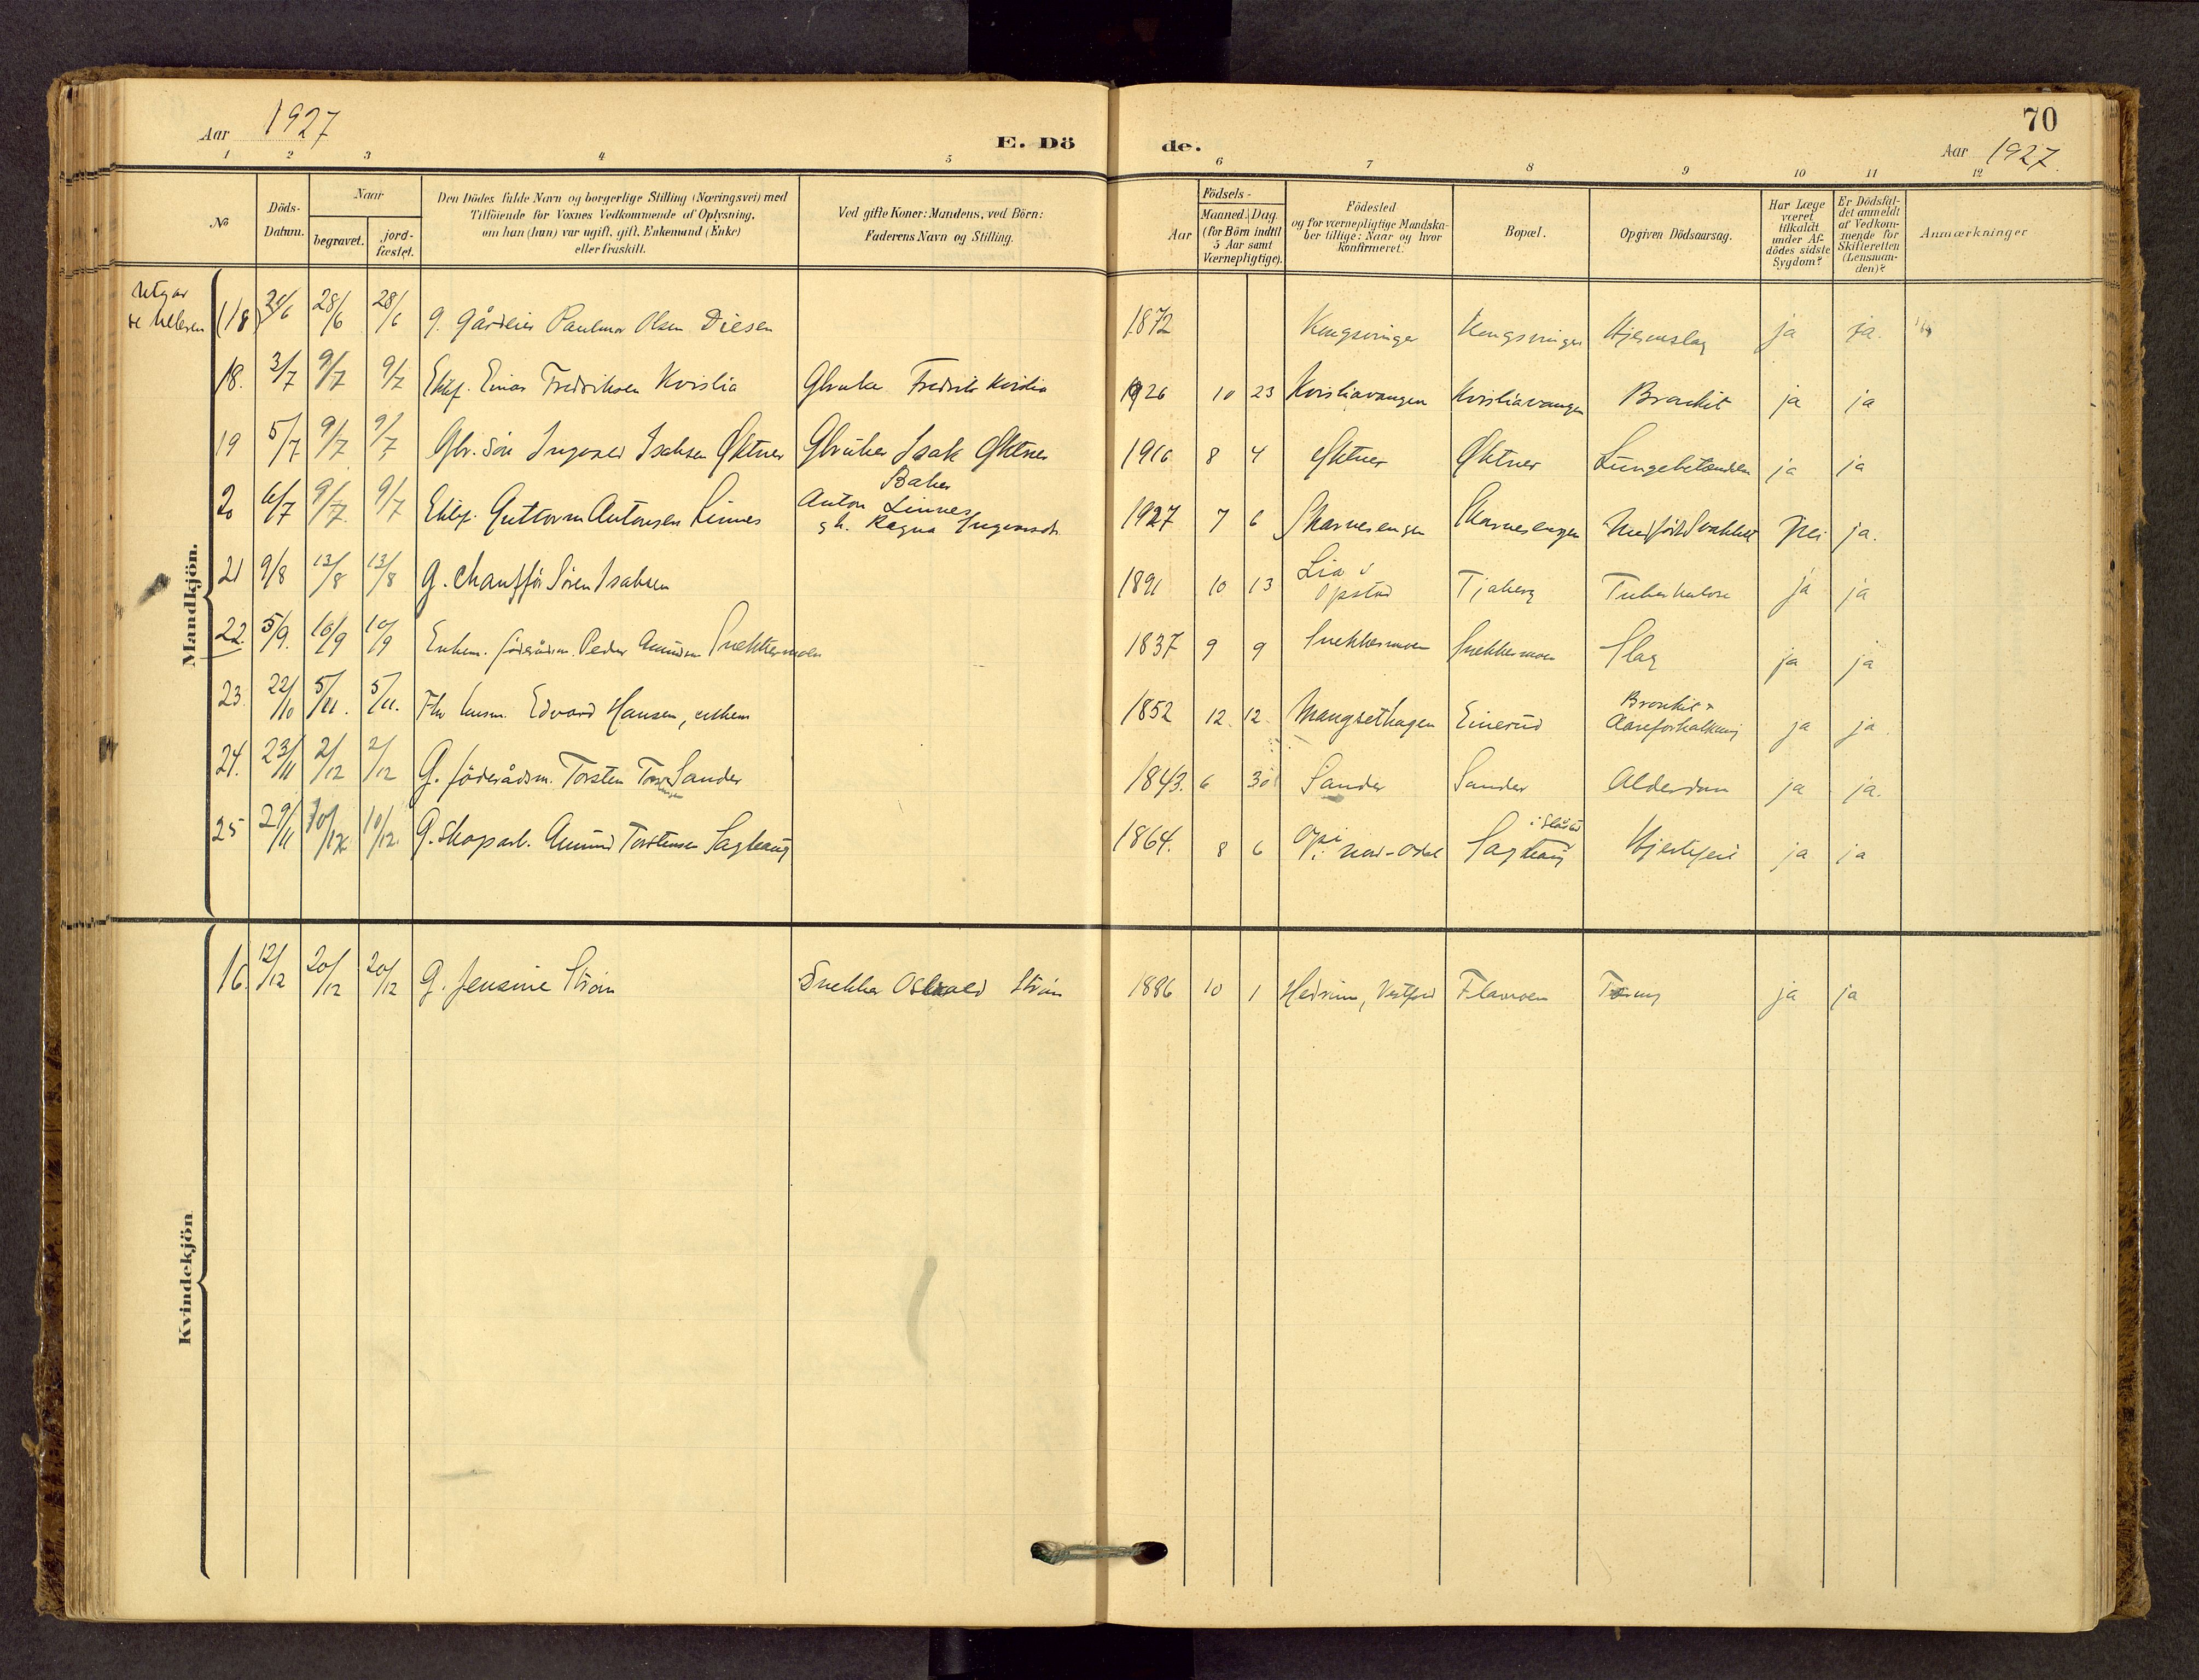 70
Aar 1927
E. Dö
de.
Aar 1927.
1 2 3 4 5 6 7 8 9 10 11 12
No
Döds-Datum.
Naar
begravet.
jord-fæstet.
Den Dödes fulde Navn og borgerlige Stilling (Næringsvei) med
Tilföiende for Voxnes Vedkommende af Oplysning,
om han (hun) var ugift, gift, Enkemand (Enke)
eller fraskilt.
Ved gifte Koner: Mandens, ved Börn:
Faderens Navn og Stilling.
Födsels-
Aar
Maaned. Dag.
(for Börn indtil
5 Aar samt
Værnepligtige).
Födested
og for værnepligtige Mandska-
ber tillige: Naar og hvor
Konfirmeret.
Bopæl.
Opgiven Dödsaarsag.
Har Læge
været
tilkaldt
under Af-
dödes sidste
Sygdom?
Er Dödsfal-
det anmeldt
af Vedkom-
mende for
Skifteretten
(Lensman-
den)?
Anmærkninger
Mandkjön.
Utgår
(18) 28/6 28/6 g. gårdeier Olsen Diesen 1872 Kongsvinger Kongsvinger Hjerneslag ja ja.
18. 3/7 9/7 9/7 Ektef. Einar Fredriksen Kvislia Gbruker Fredrik Kvislia 1926 10 23 Kvisliavangen Kvisliavangen Bronkit ja ja
19 5/7 9/7 9/7 Gbr. sön Ingvald Isaksen Øktner Gbruker Isak Øktner 1916 8 4 Øktner Øktner Lungebetændelse ja ja
Baker
20 6/7 9/7. 9/7 Ektef. Guttorm Antonsen Linnes Anton Linnes
g. h. Ragna Ingvarsdtr. 1927 7 6 Skarnesengen Skarnesengen Medfödt svakhet nei ja.
21 9/8 13/8 13/8 G. chaufför Sören Isaksen 1891 10 13 Lia i
Opstad Tjaberg Tuberkulose ja ja
22. 5/9. 10/9 10/9 Enkem. föderådsm. Peder Amundsen Snekkermoen 1837 9 9 Snekkermoen Snekkermoen Slag ja ja
23. 22/10 5/11. 5/11. Fhv husm. Edvard Hansen, enkem 1852 12. 12. Mangsethagen Einerud Bronkit &
Aareforkalkning ja ja.
24. 23/11 2/12 2/12 G. föderådsm. Torsten Sander 1843. 6 30 Sander Sander Alderdom ja ja.
25 29/11 10/12 10/12. G. skogarb. Amund Torstensen Saghaug 1864. 8 6 Nord-Odal Saghaug Hjertefeil ja ja
Kvindekjön
16. 12/12 20/12 20/12 G. Jensine Ström Snekker Oskar Ström 1886 10 1 Hedrum, Vestfold ja ja